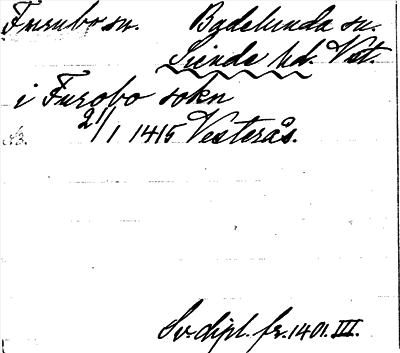 Furubo sn. Badelunda sn.
Siende hd. Vst.
i Furobo sokn
N3. 21/1 1415 Vesterås.
Sv. dipl. fr. 1401. III.